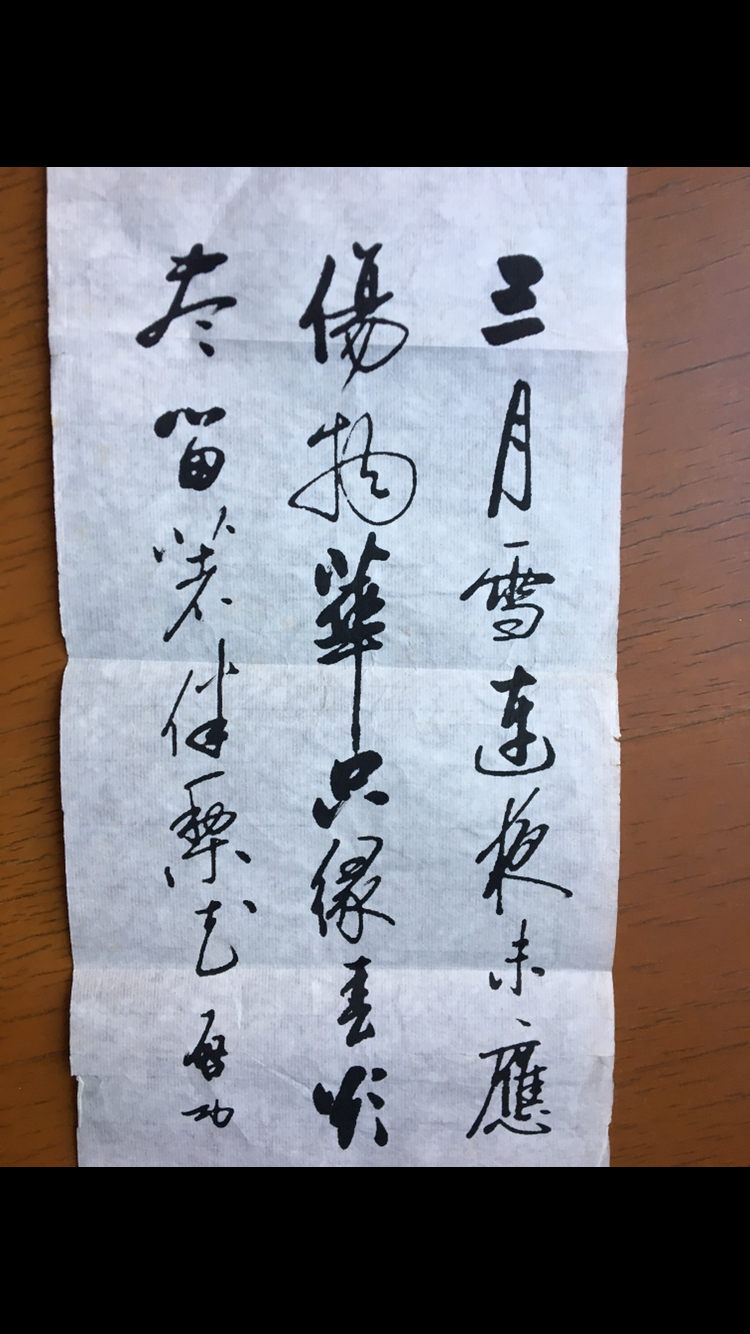 三月雪連夜未應
傷物華只緣春欲
尽留著伴梨花 啟功